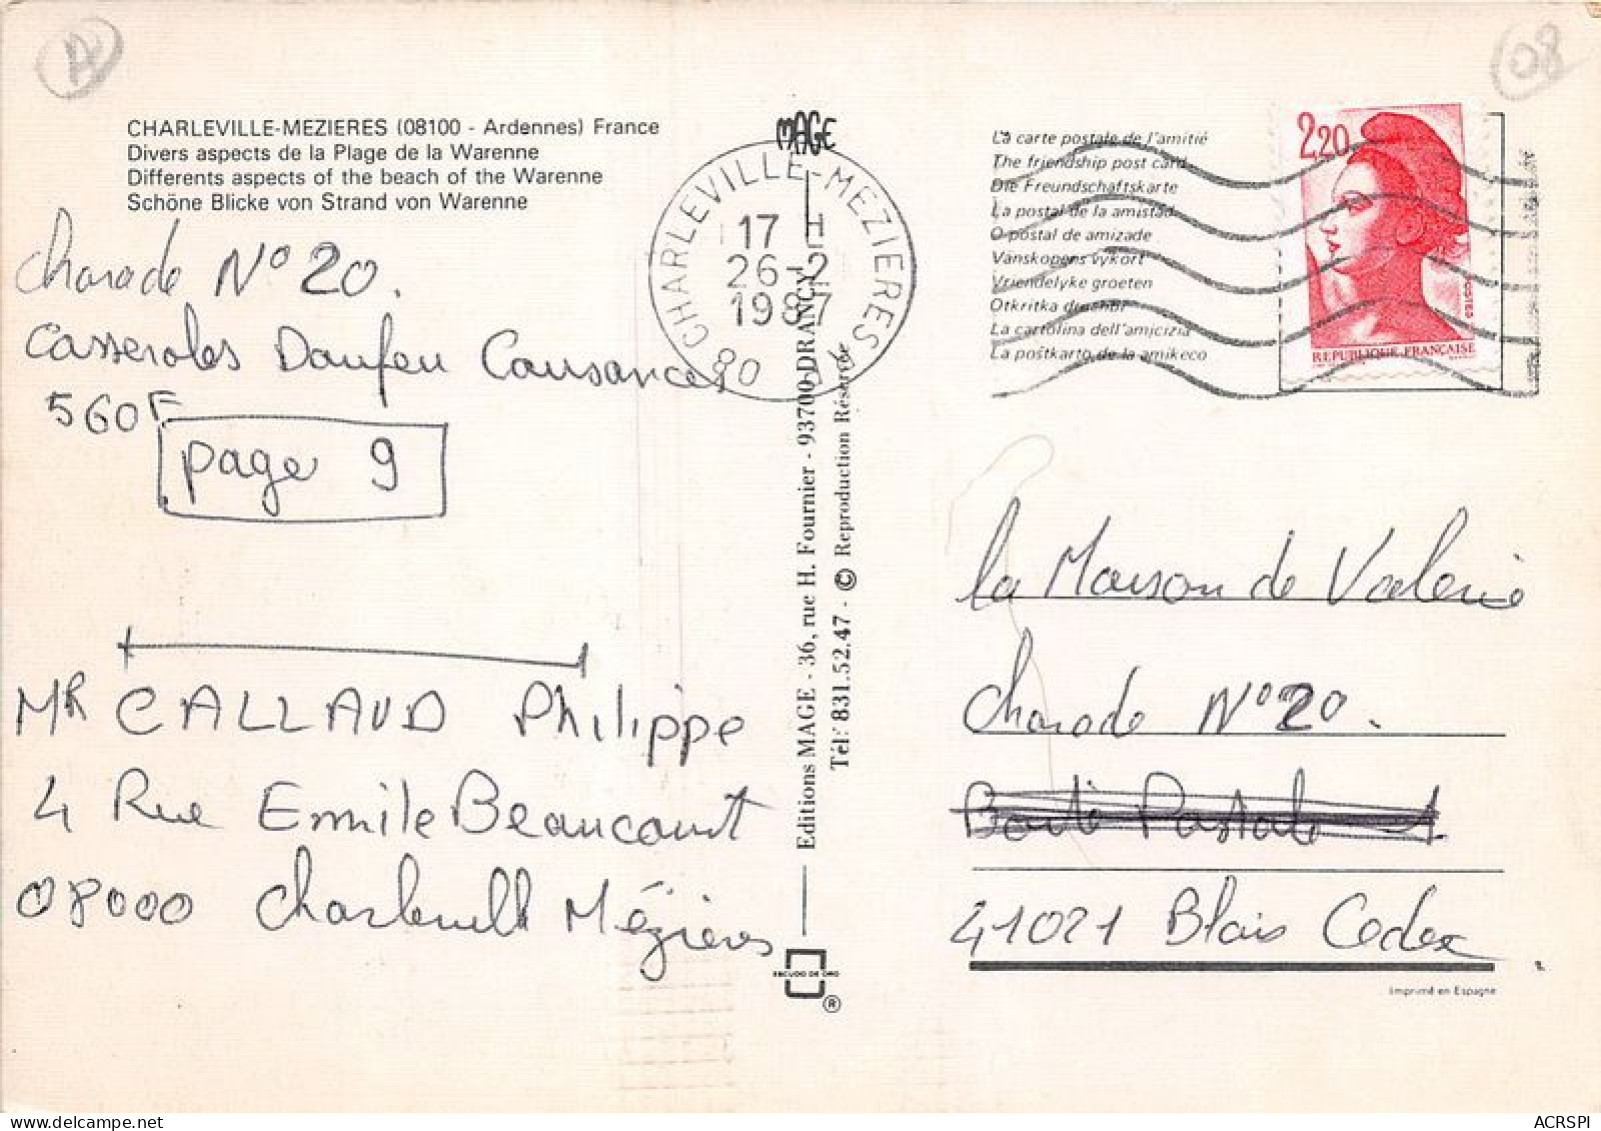 08
CHARLEVILLE-MEZIERES (08100 - Ardennes) France
Divers aspects de la Plage de la Warenne
Differents aspects of the beach of the Warenne
Schöne Blicke von Strand von Warenne
Charade N° 20.
Casseroles Doufeu Cousances
560F
page 9
MR CALLAUD Philippe
4 Rue Emile Beaucourt
08000 Charleville Mézières
MAGE
CHARLEVILLE-MEZIERES
17 H
26-2
1987
80
Editions MAGE - 36, rue H. Fournier - 93700 DRANCY
Tél: 831.52.47 - © Reproduction Réservée
ESCUDO DE ORO
®
La carte postale de l'amitié
The friendship post card
Die Freundschaftskarte
La postal de la amistad
O postal de amizade
Vanskopens vykort
Vriendelyke groeten
Otkritka druchbi
La cartolina dell'amicizia
La poŝtkarto de la amikeco
2,20
POSTES
REPUBLIQUE FRANÇAISE
la Maison de Valerie
Charade N° 20.
Boite Postale 1
41021 Blois Cedex
Imprimé en Espagne
ACRSPI